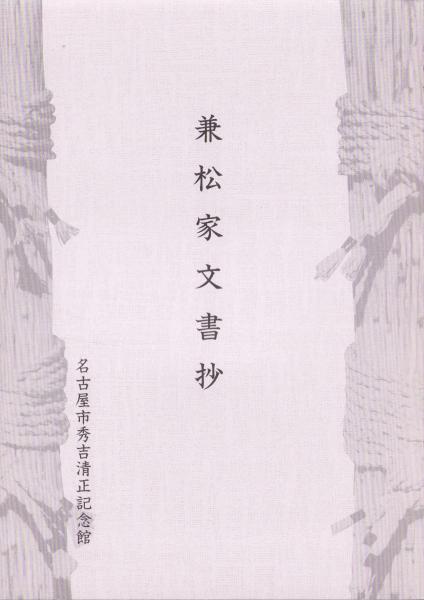 兼松家文書抄
名古屋市秀吉清正記念館